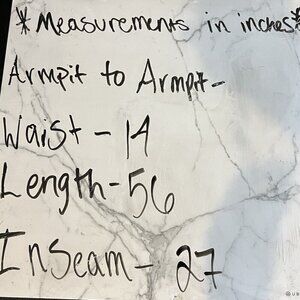 *Measurements in inches*
Armpit to Armpit-
Waist - 14
Length - 56
Inseam - 27